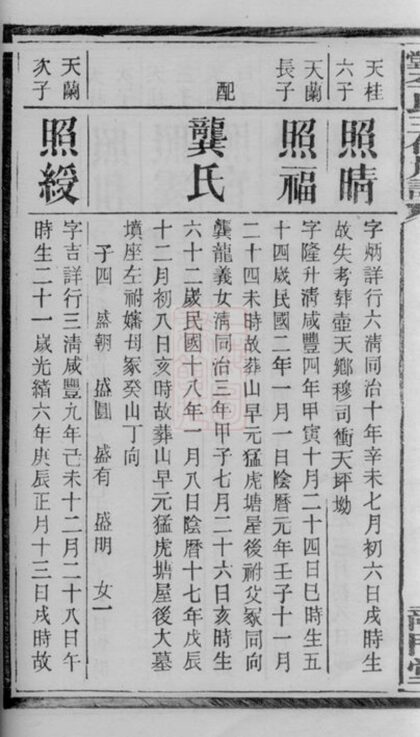 天桂
六子
照晴
字炳詳行六清同治十年辛未七月初六日戌時生
故失考葬壺天鄉穆司衝天坪坳
天蘭
長子
照福
字隆升清咸豐四年甲寅十月二十四日巳時生五
十四歲民國二年一月一日陰曆元年壬子十一月
二十四未時故葬山早元猛虎塘屋後祔父冢同向
配
龔氏
龔龍義女清同治三年甲子七月二十六日亥時生
六十二歲民國十八年一月八日陰曆十七年戊辰
十二月初八日亥時故葬山早元猛虎塘屋後大墓
墳座左祔嬸母冢癸山丁向
子四 盛朝 盛圓 盛有 盛明 女一
天蘭
次子
照綬
字吉詳行三清咸豐九年己未十二月二十八日午
時生二十一歲光緒六年庚辰正月十三日戌時故